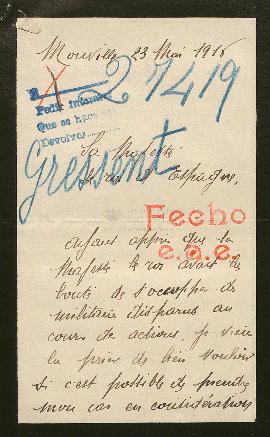 23 Mai 1918
27419
Pedir Informe
Que se
Devolver
Gressent
Sa Majesté
d'Espagne,
Fecho
e.a.e.
Ayant appris que la
Majesté le roi avait la
bonté de s'occupper des
militaire disparus au
cours de actions, je viens
la prier de bien vouloir
si c'est possible de prendre
mon cas en considération